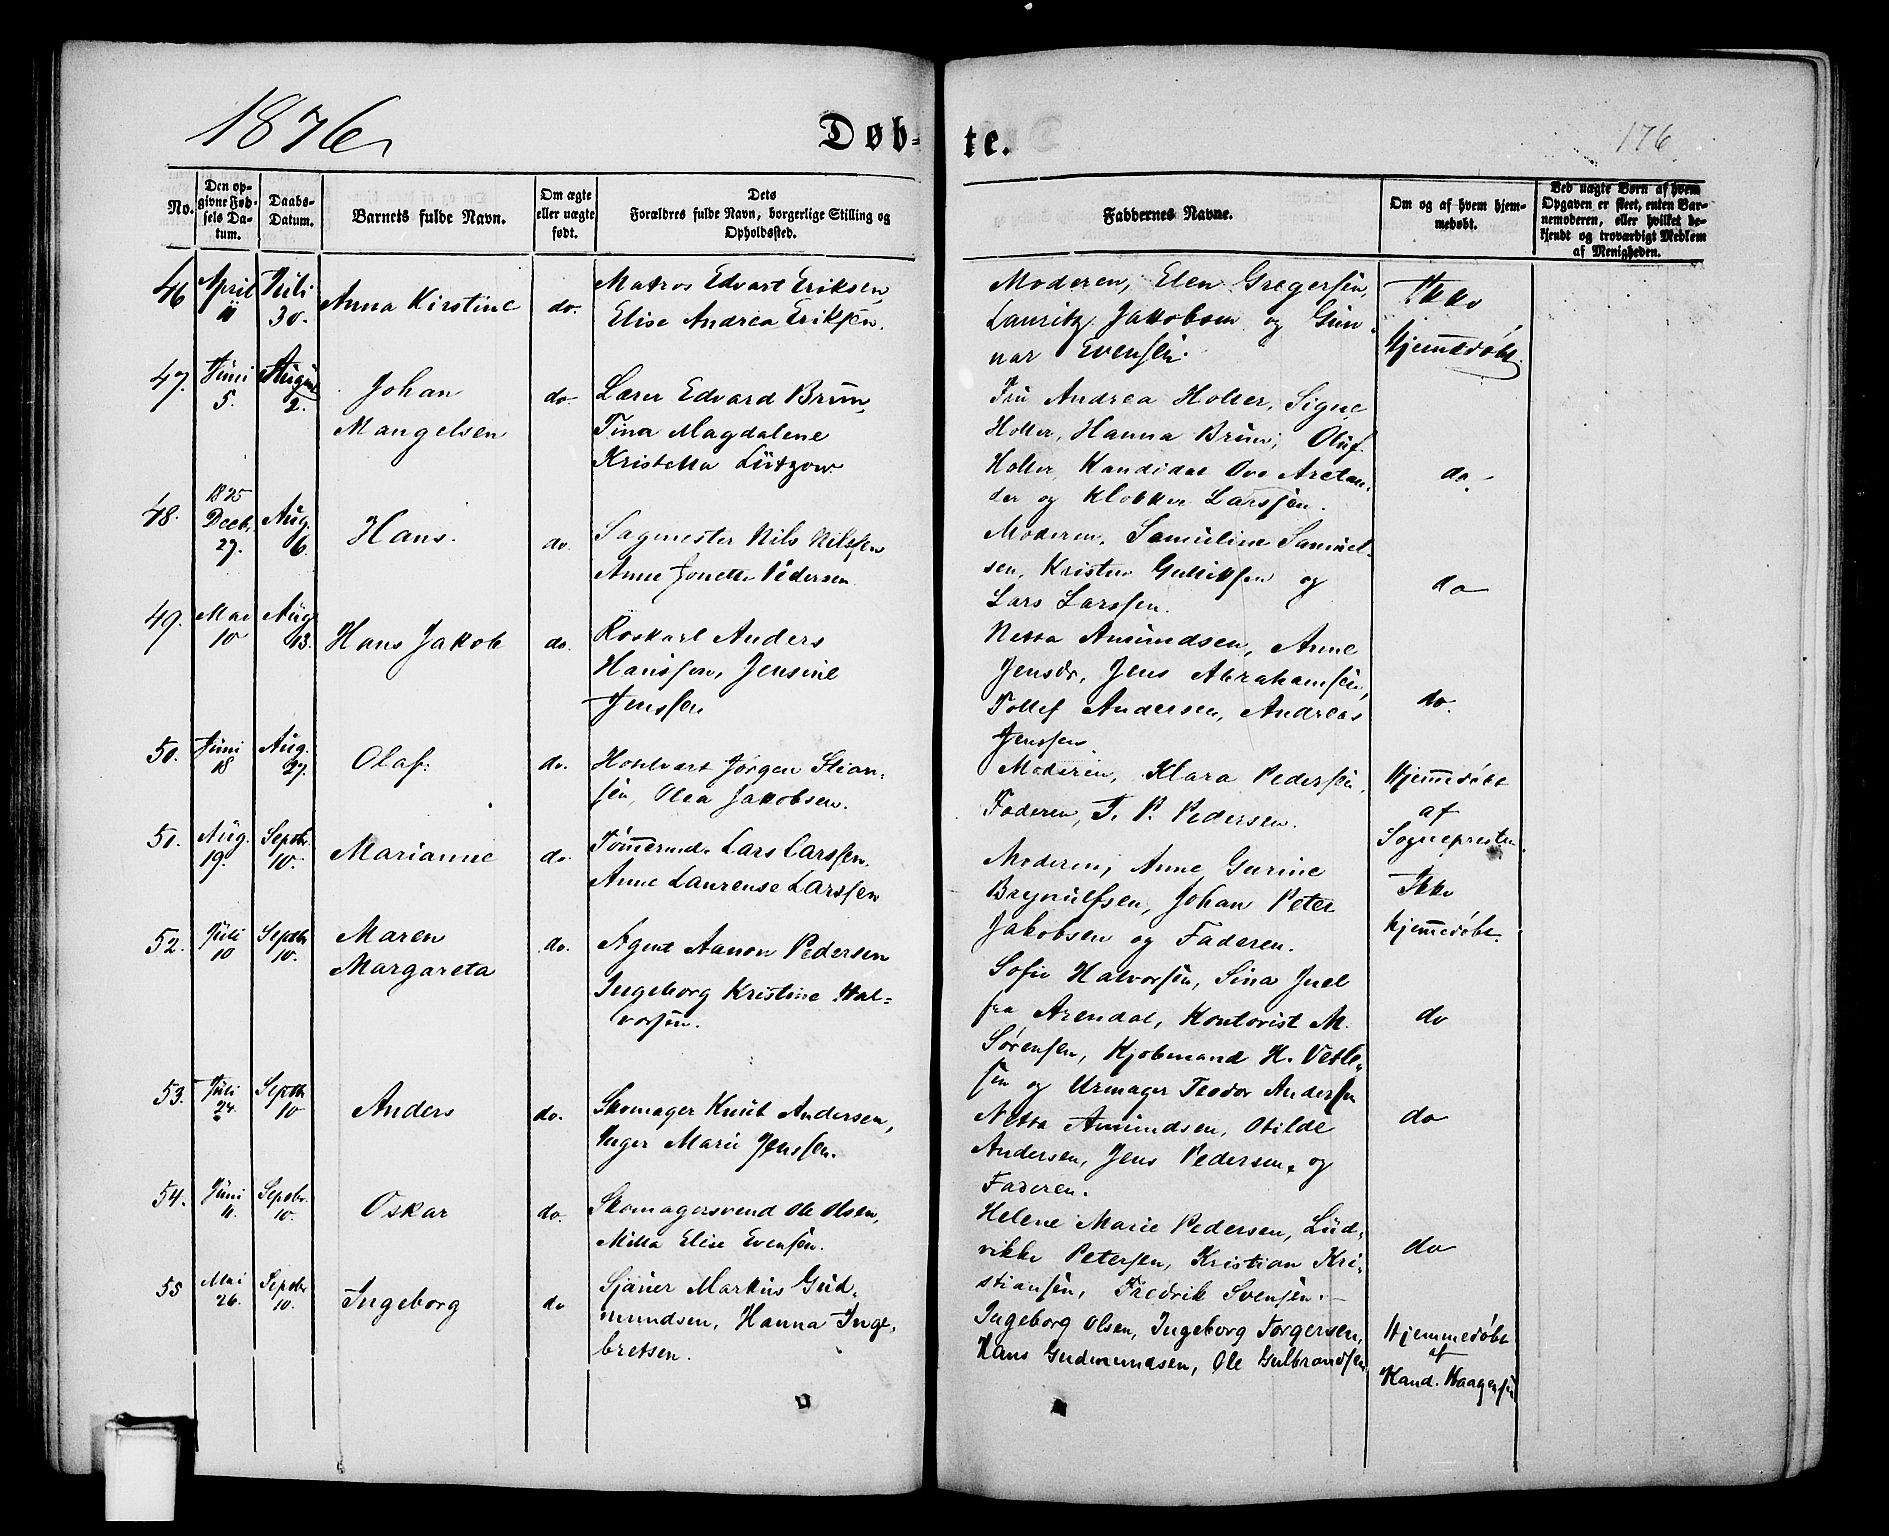 1876
Døb-
te.
176
No.
Den op-
givne Fød-
sels Da-
tum.
Daabs-
Datum.
Barnets fulde Navn.
Om ægte
eller uægte
født.
Dets
Forældres fulde Navn, borgerlige Stilling og
Opholdssted.
Faddernes Navne.
Om og af hvem hjem-
medøbt.
Ved uægte Børn af hvem
Opgaven er skeet, enten Bar-
nemoderen, eller hvilket be-
kjendt og troværdigt Medlem
af Menigheden.
46
April
11
Juli
30.
Anna Kirstine
do.
Matros Edvart Eriksen,
Elise Andrea Eriksen.
Moderen, Elen Gregersen,
Lauritz Jakobsen og Gun-
nar Evensen.
Ikke
hjemmedøbt.
47.
Juni
5.
August
2.
Johan
Mangelsen
do.
Lærer Edvard Brun,
Tina Magdalene
Kristella Lützow
Fru Andrea Holter, Signe
Holter, Hanna Brun, Oluf
Holter, Kandidat Ove Arctan-
der og Klokker Larssen.
do.
48.
1875
Decbr.
27.
Aug.
6.
Hans.
do.
Sagmester Nils Nilssen
Anne Jonette Pedersen.
Moderen, Samuline Samuel-
sen, Kristen Gulliksen og
Lars Larssen.
do
49.
Mai
10
Aug.
13.
Hans Jakob
do.
Roskarl Anders
Hanssen, Jensine
Jenssen
Netta Amundsen, Anne
Jensdr, Jens Abrahamsen,
Tollef Andersen, Andreas
Jenssen.
do.
50.
Juni
18
Aug.
27.
Olaf.
do.
Jørgen Stian-
sen, Olea Jakobsen.
Moderen, Klara Pedersen,
Faderen, T. P. Pedersen.
Hjemmedøbt
af
Sognepresten.
51.
Aug.
19.
Septbr.
10.
Marianne
do.
Tømmermd. Lars Larssen.
Anne Laurense Larssen
Moderen, Anne Gurine
Brynulfsen, Johan Peter
Jakobsen og Faderen.
Ikke
hjemmedøbt.
52.
Juli
10
Septbr
10.
Maren
Margareta
do.
Agent Aanon Pedersen
Ingeborg Kristine Hal-
vorsen.
Sofie Halvorsen, Sina Juel
fra Arendal, Kontorist M.
Sørensen, Kjøbmand H. Vetle-
sen og Urmager Teodor Andersen
do
53.
Juli
24.
Septbr
10
Anders
do.
Skomager Knut Andersen,
Inger Marie Jenssen.
Netta Amundsen, Otilde
Andersen, Jens Pedersen, og
Faderen.
do
54.
Juni
11.
Septbr.
10.
Oskar
do.
Skomagersvend Ole Olsen,
Milla Elise Evensen.
Helene Marie Pedersen, Lud-
vikke Petersen, Kristian Kri-
stiansen, Fredrik Svensen.
do
55
Mai
26.
Septbr
10.
Ingeborg
do
Sjauer Markus Gud-
mundsen, Hanna Inge-
bretsen.
Ingeborg Olsen, Ingeborg Torgersen,
Hans Gudmundsen, Ole Gulbrandsen.
Hjemmedøbt
af
Kand. Haagensen